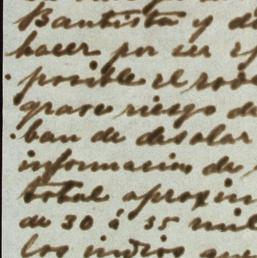 Bautista y de
hacer por ser
posible el
grave riesgo de
ban de desolar
informacion de
total aproxim
de 30 á 35 mil
los indios que